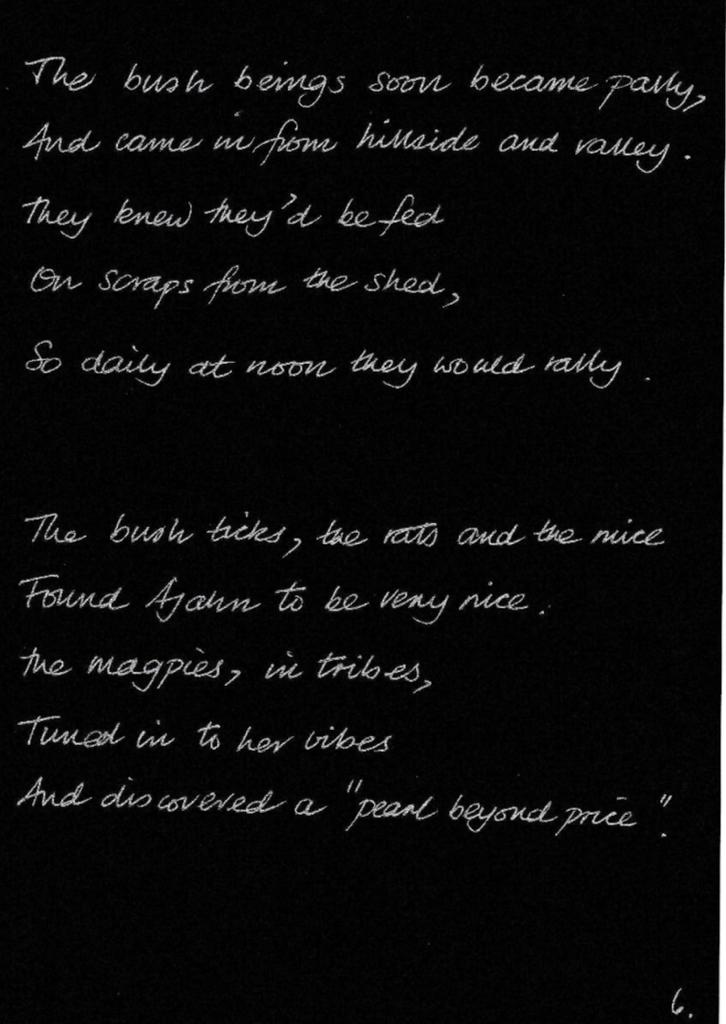 The bush beings soon became pally,
And came in from hillside and valley.
They knew they'd be fed
On scraps from the shed,
So daily at noon they would rally.
The bush ticks, the rats and the mice
Found Ajahn to be very nice.
The magpies, in tribes,
Tuned in to her vibes
And discovered a "pearl beyond price".
6.